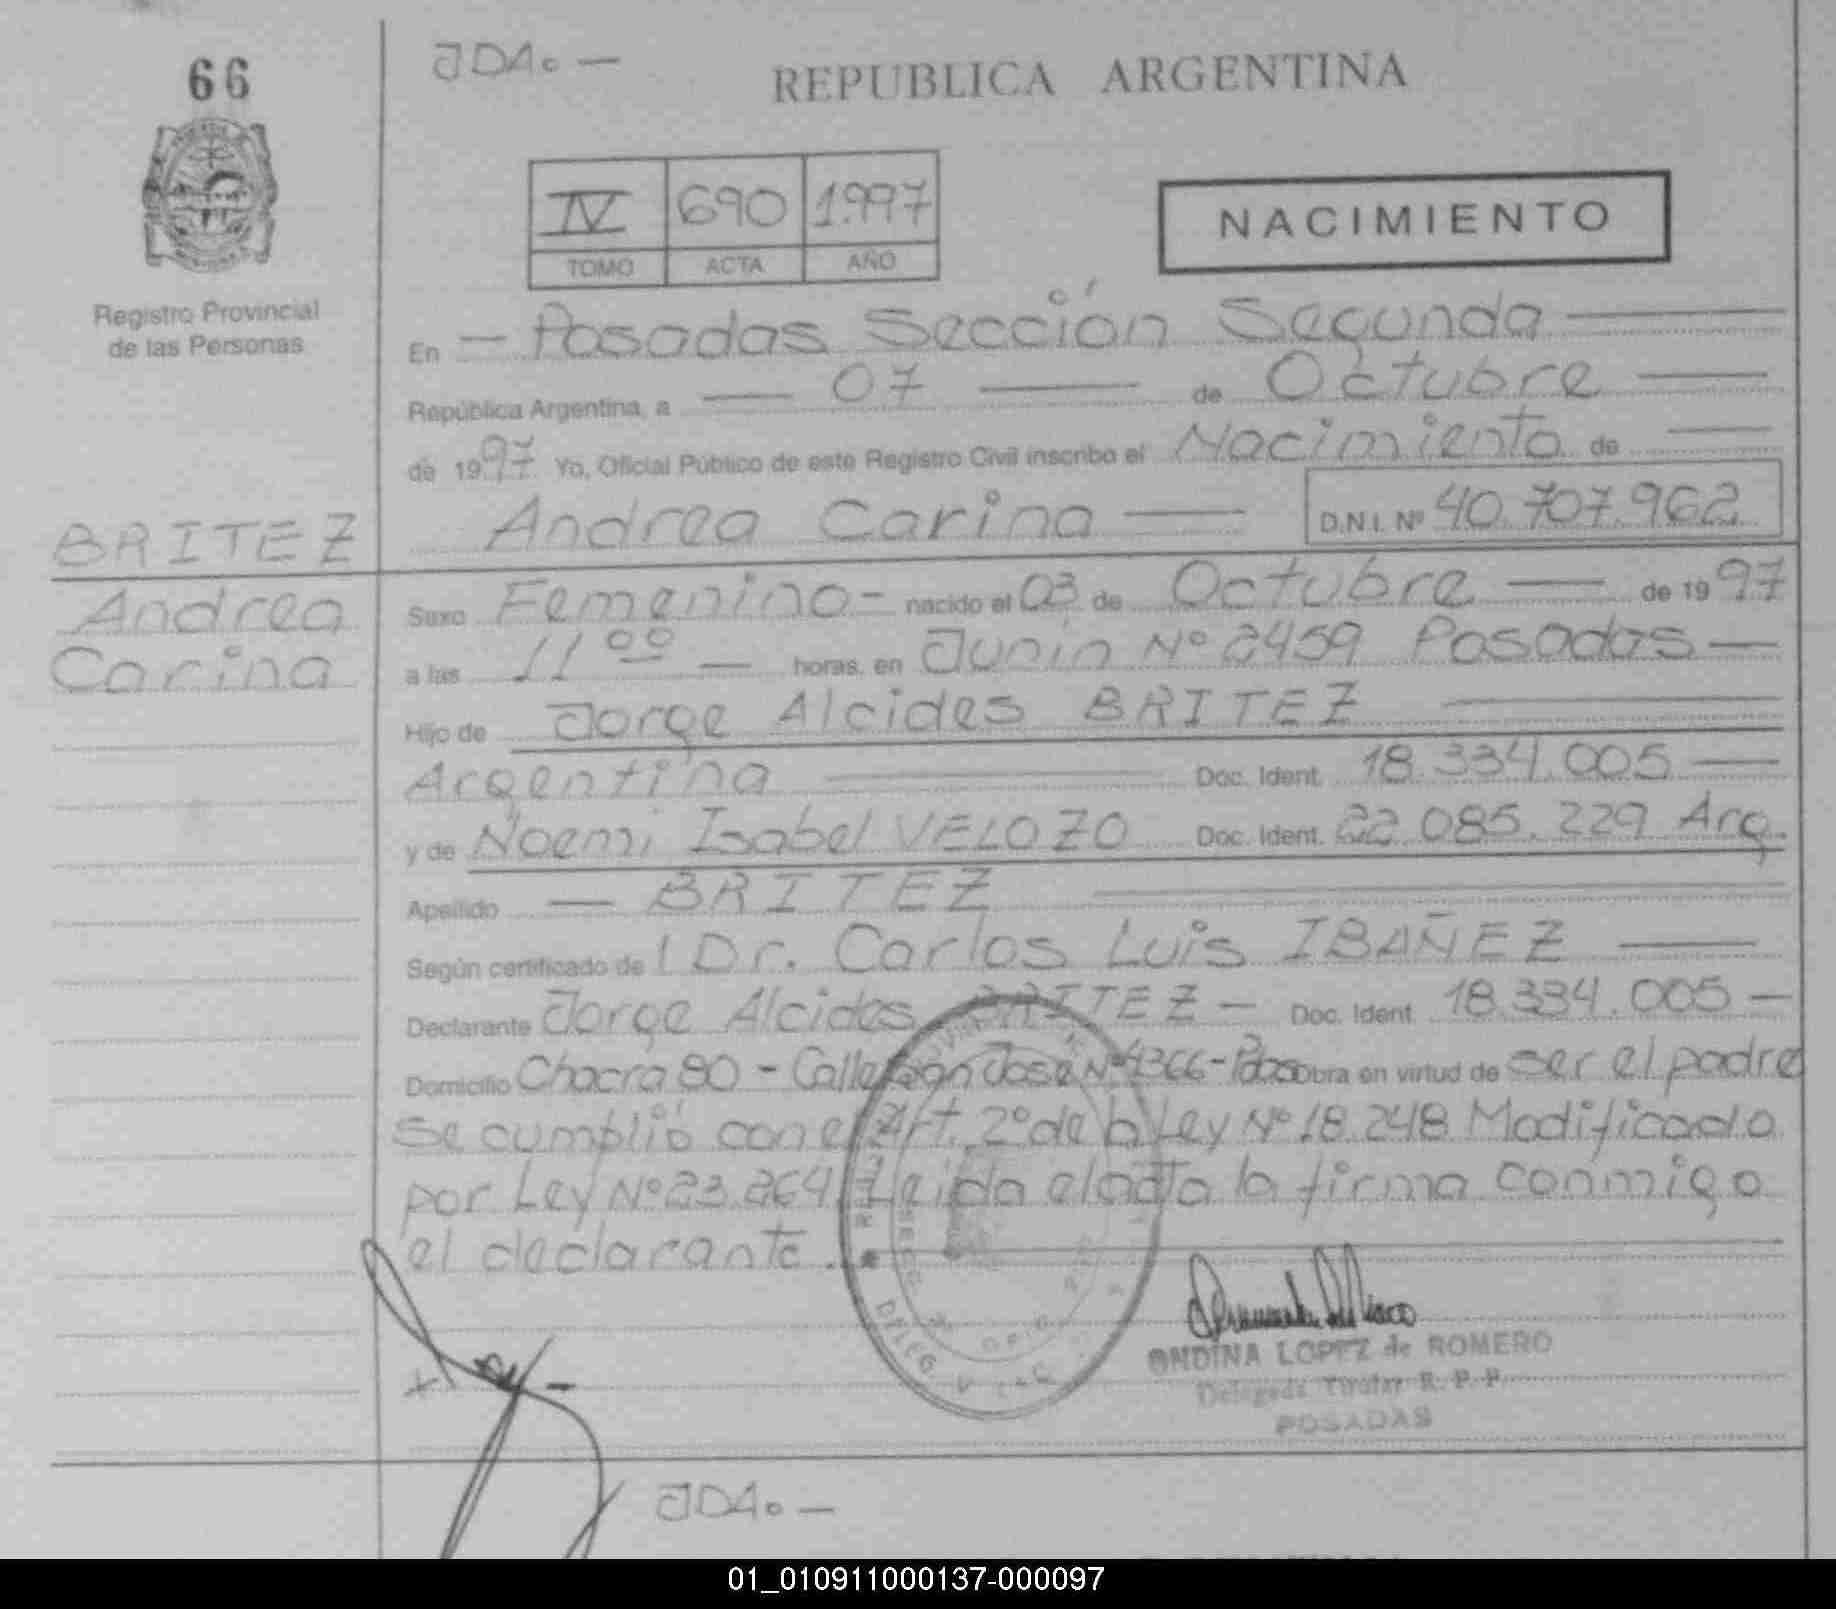 66
JDA. —
REPUBLICA ARGENTINA
IV 690 1.997
TOMO ACTA AÑO
NACIMIENTO
Registro Provincial
de las Personas
En — Posadas Sección Segunda —
República Argentina, a — 07 — de Octubre —
de 1997 Yo, Oficial Público de este Registro Civil inscribo el Nacimiento de —
Andrea Carina — D.N.I. Nº 40.707.962
BRITEZ
Andrea
Carina
Sexo Femenino - nacido el 03 de Octubre — de 1997
a las 11 00 — horas, en Junín Nº 2459 Posadas —
Hijo de Jorge Alcides BRITEZ
Argentina — Doc. Ident. 18.334.005 —
y de Noemi Isabel VELOZO Doc. Ident. 22.085.229 Arg.
Apellido — BRITEZ
Según certificado de l Dr. Carlos Luis IBAÑEZ —
Declarante Jorge Alcides BRITEZ — Doc. Ident. 18.334.005 —
Domicilio Chacra 90 - Calle San José Nº 4366 - Pdas Obra en virtud de ser el padre
se cumplió con el Art. 2º de la Ley Nº 18.248 Modificado
por Ley Nº 23.264. Leida el acta la firma conmigo
el declarante..
ONDINA LOPEZ de ROMERO
Delegada Titular R. P. P.
POSADAS
JDA. —
01_010911000137-000097